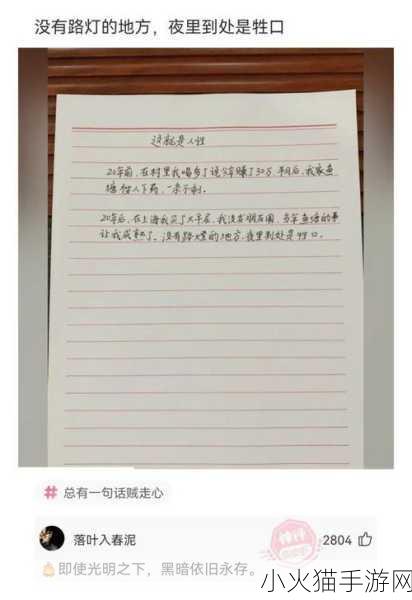 没有路灯的地方，夜里到处是牲口
这就是人性
20年前，在村里我喝多了说今年赚了30万，半月后，我家鱼
塘被人下药，一条不剩。
20年后，在上海我买了大平层，我没有朋友圈，当年鱼塘的事
让我成熟了。没有路灯的地方，夜里到处是牲口。
# 总有一句话贼走心
落叶入春泥
2804
即使光明之下，黑暗依旧永存。
小火猫手游网